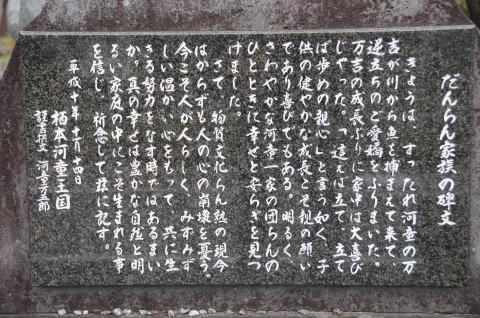 だんらん家族の碑文
きょうは、すったれ河童の万
吉が川から魚を捕まえて来て、
逆立ちのご愛嬌をふりまいた。
万吉の成長ぶりに家中は大喜び
じゃった。「這えば立て、立て
ば歩めの親心」と言う如く、子
供の健やかな成長こそ親の願い
であり喜びでもある。明るく
さわやかな河童一家の団らんの
ひとときに幸せと安らぎを見つ
けました。
さて、物質文化らん熟の現今
はからずも人の心の崩壊を憂う。
今こそ人が人らしく、みずみず
しい温かい心をもって、共に生
きる努力をなす時ではあるまい
か。真の幸せは豊かな自然と明
るい家庭の中にこそ生まれる事
を信じ、祈念して茲に記す。
平成十年十一月十四日
栖本河童王国
謹言撰文 河童万五郎